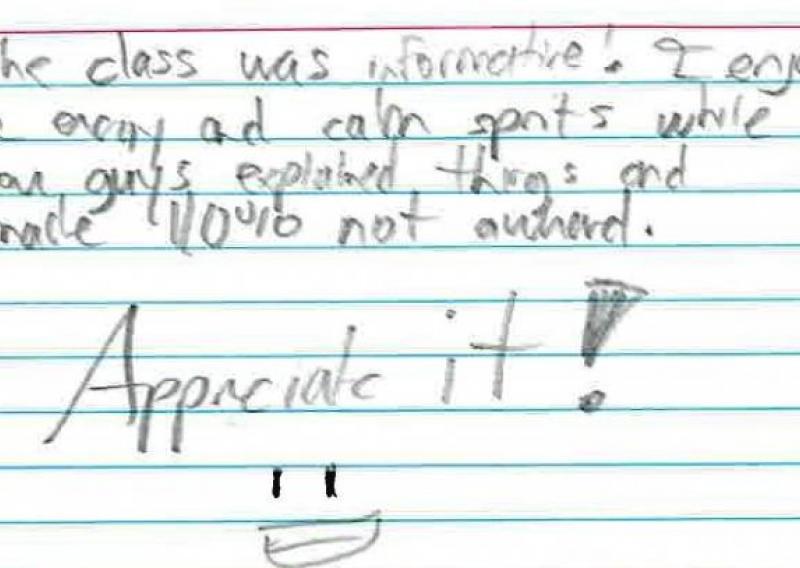 he class was informative! I enjo
e enrgy ad calm spirits while
ou guys explained things and
made not awkward.
Appreciate it!